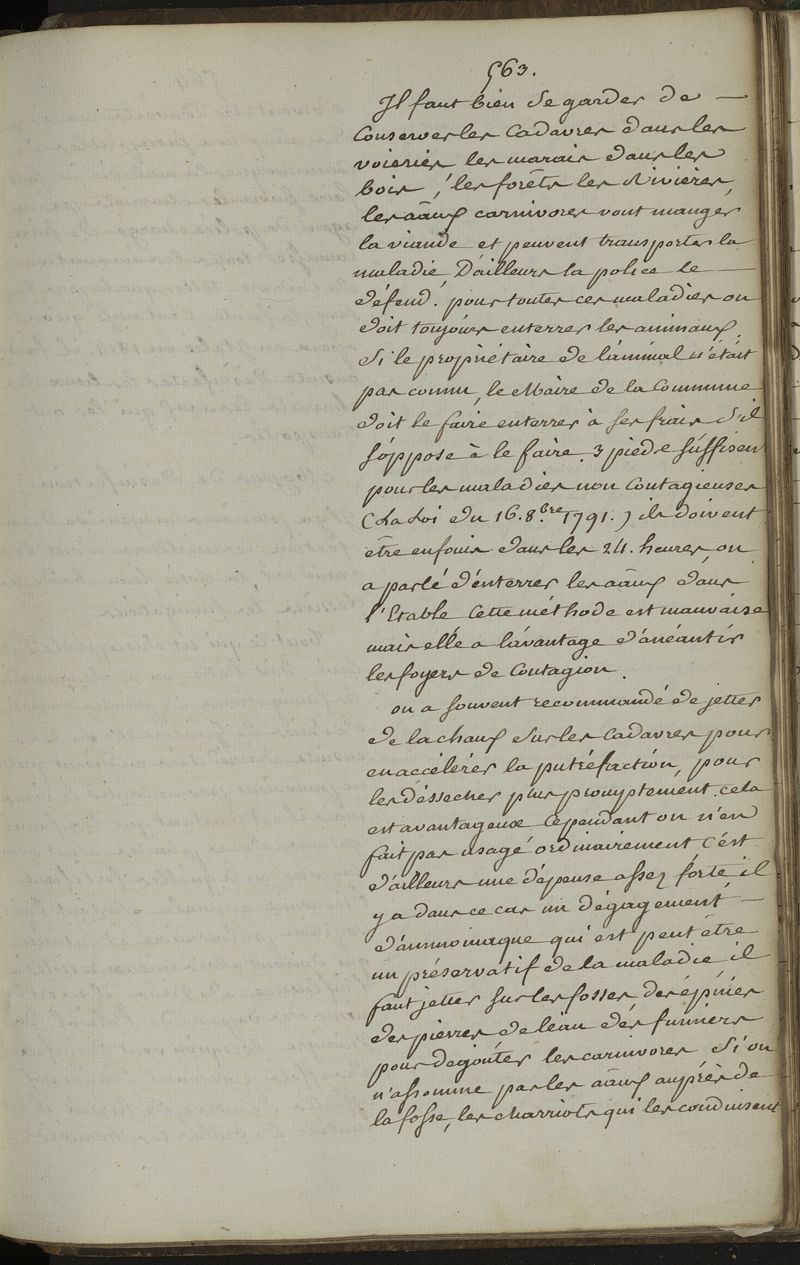 563.
Il faut bien se garder de —
conserver les cadavres dans les
voieries les marais dans les
bois, les forêts les Rivières,
les aãux carnivores vont manger
la viande et peuvent transporter la
maladie, D'ailleurs la police le —
défend. pour toutes ces maladies on
doit toujours enterrer les animaux.
Si le propriétaire de l'animal n'était
pas connu, le Maire de la Commune
doit le faire enterrer à ses frais S'il
s'oppose à le faire. 3 pieds suffisent
pour les maladies non contagieuses
(La Loi du 16. 8.bre 1791.) ils doivent
être enfouis dans les 24. heures on
a parlé d'enterrer les aãux dans
l'Etable Cette méthode est mauvaise
mais elle a l'avantage d'anéantir
les foyers de Contagion.
on a souvent recommandé de jetter
de la chaux sur les cadavres pour
en accélérer la putréfaction, pour
les déssecher plus promptement. cela
est avantageux cependant on n'en
fait pas usagé ordinairement C'est
d'ailleurs une dépense assez forte il
y a dans ce cas un dégagement —
d'ammoniaque qui est peut être
un préservatif de la maladie il
faut jetter sur les fosses des épines
des pierres de l'eau des fumiers
pour degoûter les carnivores Si on
n'assomme pas les aãux auprès de
la fosse, les charriots qui les conduisent